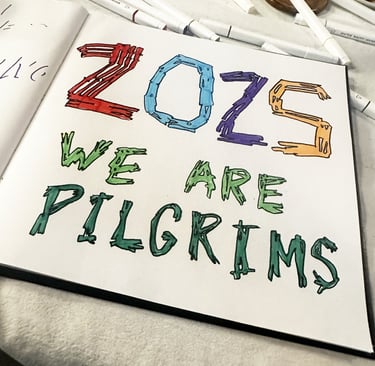 2025
WE ARE
PILGRIMS